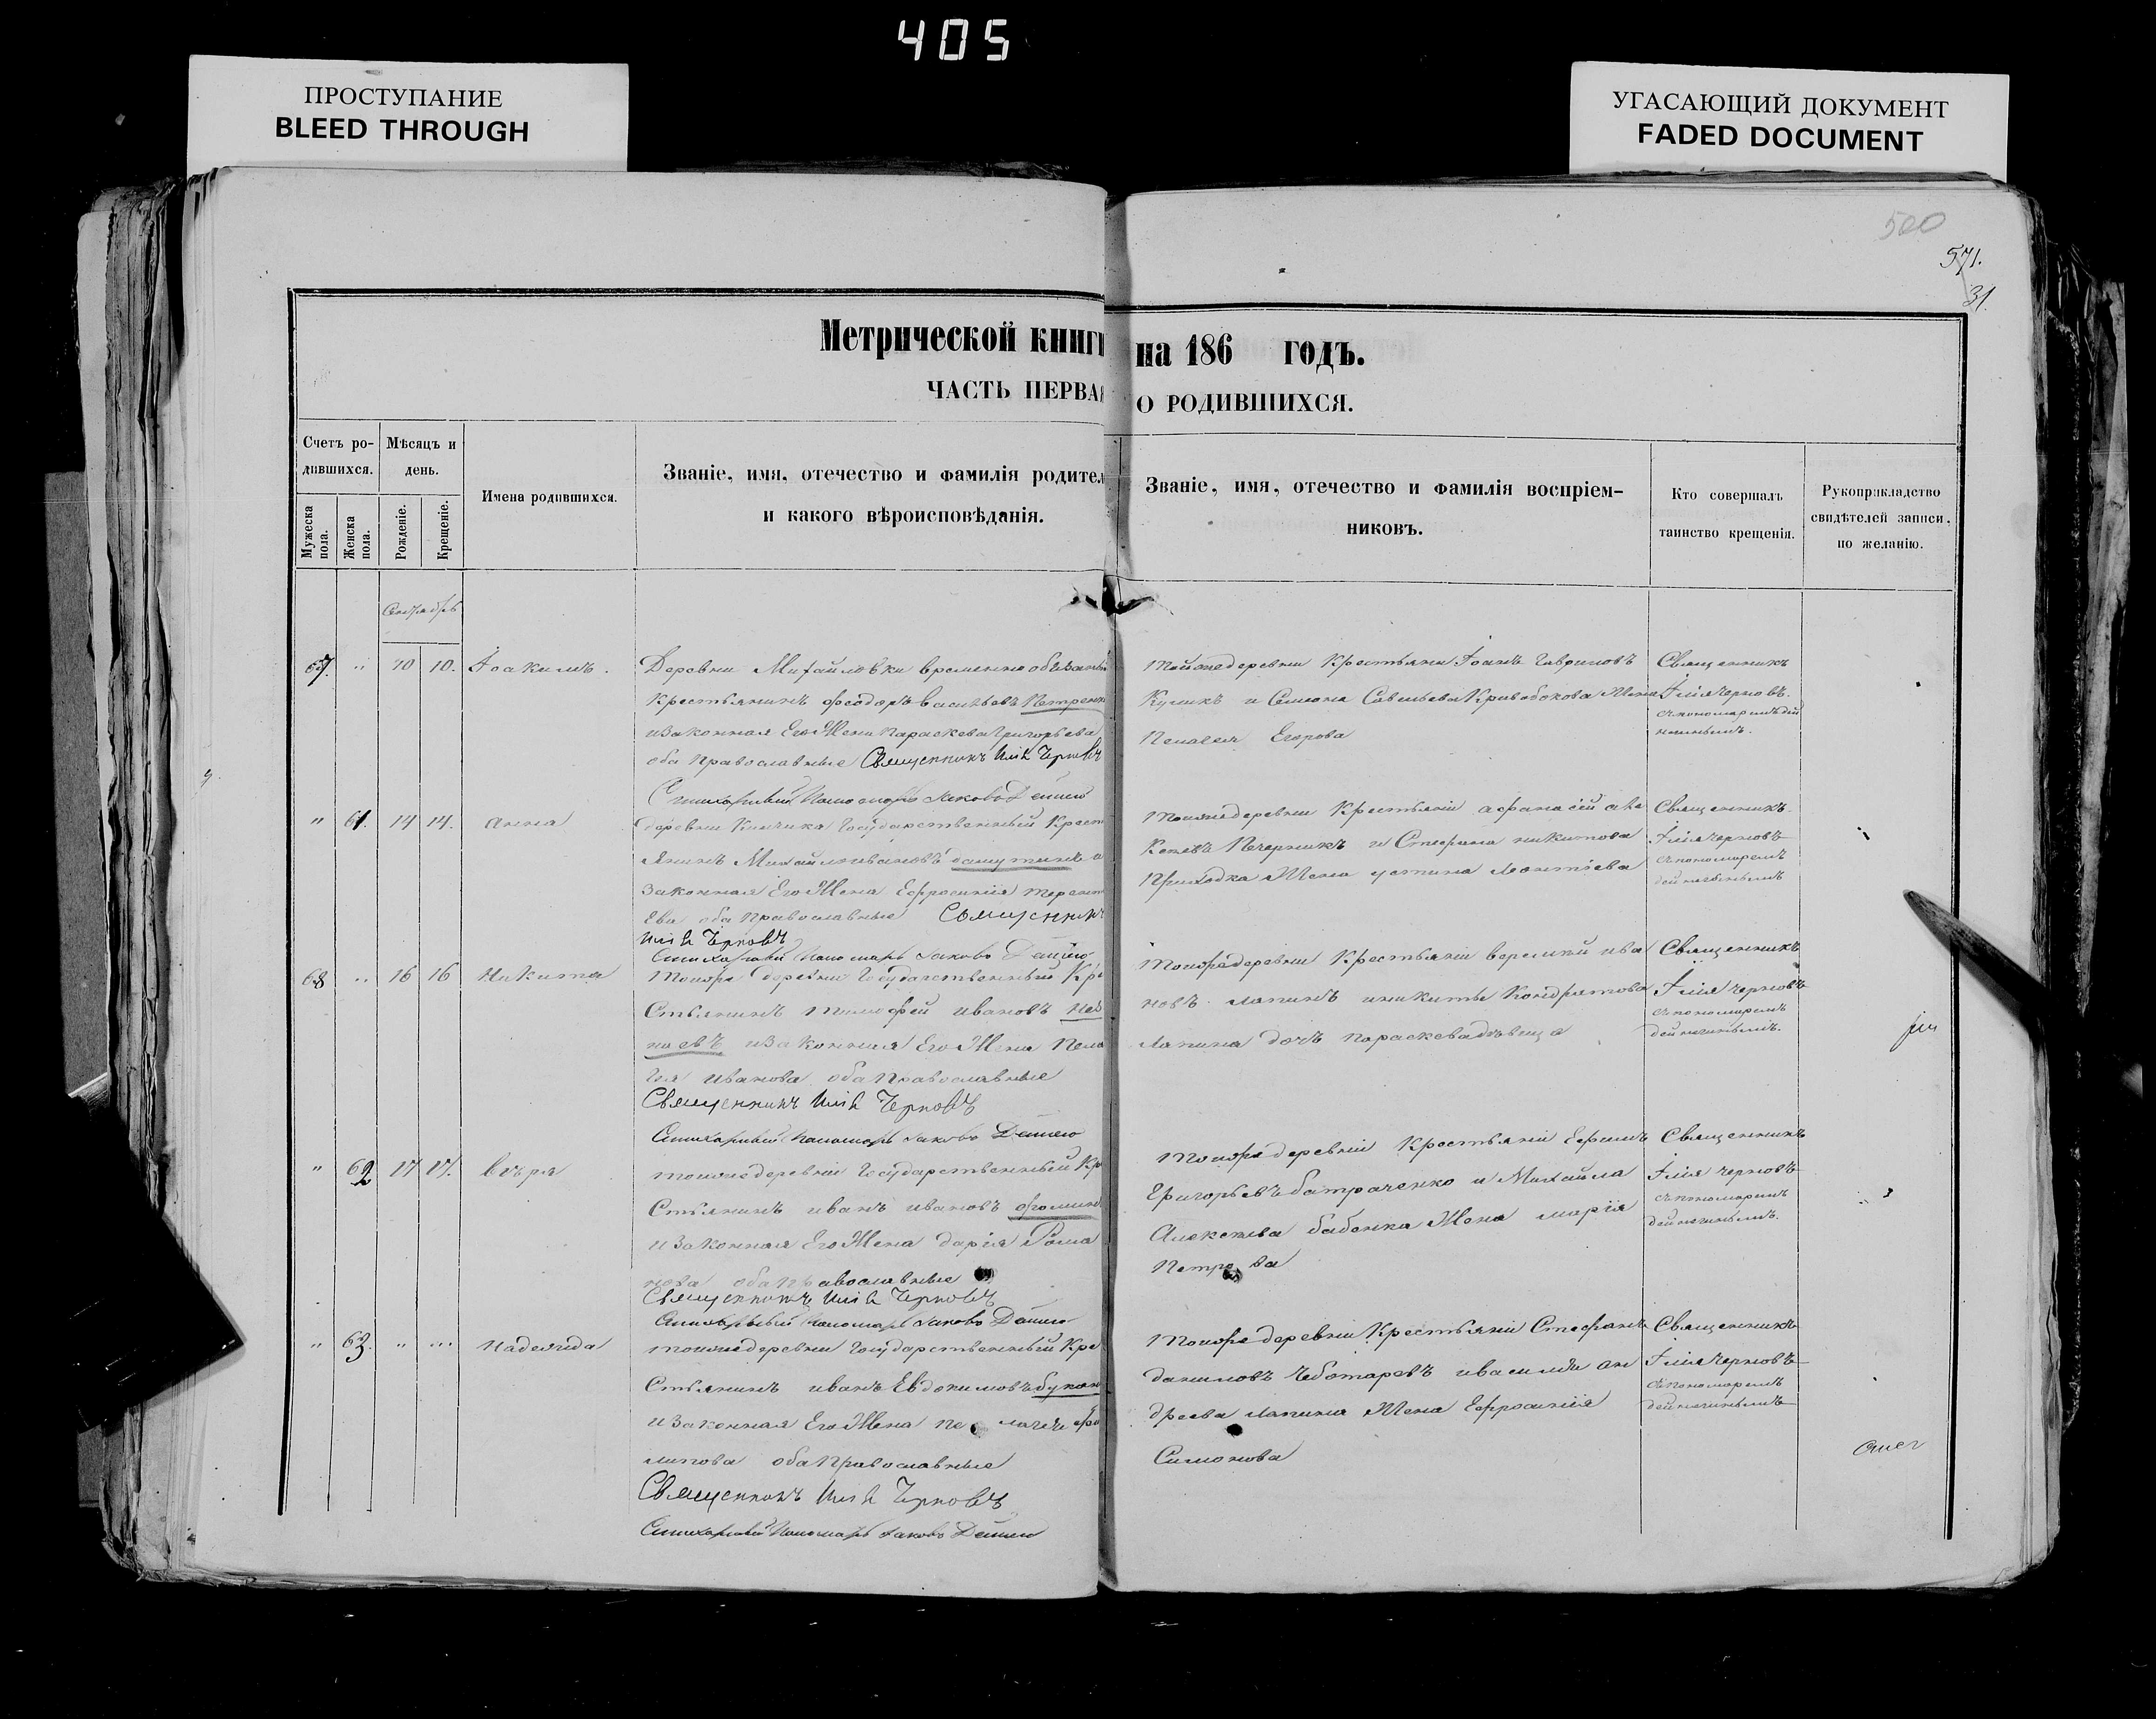 405
ПРОСТУПАНИЕ
BLEED THROUGH
УГАСАЮЩИЙ ДОКУМЕНТ
FADED DOCUMENT
500
571.
31
Метрической книги на 186 годъ.
ЧАСТЬ ПЕРВАЯ О РОДИВШИХСЯ.
Счетъ ро-
дившихся.
Мужеска
пола.
Женска
пола.
Мѣсяцъ и
день.
Рожденіе.
Крещеніе.
Имена родившихся.
Званіе, имя, отечество и фамилія родител
и какого вѣроисповѣданія.
Званіе, имя, отечество и фамилія воспріем-
никовъ.
Кто совершалъ
таинство крещенія.
Рукоприкладство
свидѣтелей записи.
по желанію.
Сентябрь
67. " 10 10. Іоакимъ.
Деревни Михайловки временно обязанный
Крестьянинъ Феодоръ Васильевъ Петренк
изаконная Его Жена Параскева Григорьева
оба Православные Священникъ Илія Черновъ
Стихарный Пономарь Іаковъ
тойже деревни Крестьяни Іоанъ Гавриловъ
Куликъ и Семиона Савельева Кривобокова Жена
Пелагея Егорова
Священникъ
Илія Черновъ.
съ пономаремъ
" 61. 14 14. Анна
деревни Государственный Крест
янинъ Михаилъ Ивановъ
законная Его Жена Ефросинія Терент
Ева оба Православные Священникъ
Илія Черновъ
Стихарный Пономарь Іаковъ
тоиже деревни Крестьяни Афанасій
Печерникъ и Стефана Никитова
Приходка Жена устина Леонтіева
Священникъ
Илія Черновъ
съ пономаремъ
68 " 16 16 Никита
тоиже деревни Государственный Кре
Стьянинъ Тимофей Ивановъ
изаконная Его Жена Пела
гія Иванова оба Православные
Священникъ Илія Черновъ
Стихарный Пономарь Іаковъ
тоиже деревни Крестьяни ива
новъ Лапинъ иникиты Кондратова
Лапина дочь Параскева дѣвица
Священникъ
Илія Черновъ
съ пономаремъ
" 62 17 17. Вѣра
тоиже деревни Государственный Кр
Стьянинъ Иванъ Ивановъ Фомин
изаконная Его Жена Дарія Рома
нова оба Православные
Священникъ Илія Черновъ
Стихарный Пономарь Іаковъ
тоиже деревни Крестьяни Ефимъ
Григорьевъ Батраченко и Михаила
Алексѣева Бабенка Жена Марія
Петрова
Священникъ
Илія Черновъ
съ пономаремъ
" 63. " " Надежда
тоиже деревни Государственный Кре
Стьянинъ Иванъ Евдокимовъ
изаконная Его Жена Пелагея Фи
липова оба Православные
Священникъ Илія Черновъ
Стихарный Пономарь Іаковъ
тоиже деревни Крестьяни Стефанъ
Даниловъ Чеботаревъ ивасилія Ан
дреева Лапина Жена Ефросинія
Симонова
Священникъ
Илія Черновъ
съ пономаремъ